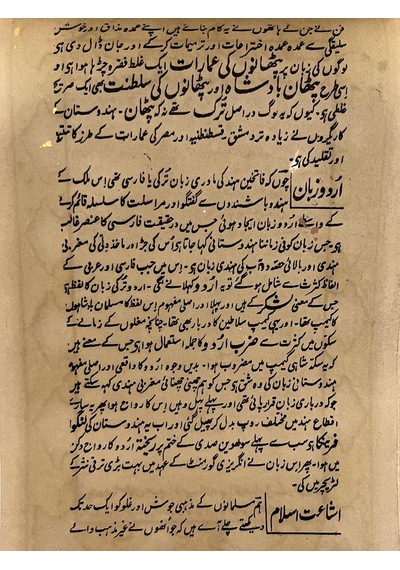 فن نے جن کے ہاتھوں نے یہ کام بنائے ہیں اپنے عمدہ مذاق اور خوش
سلیقگی سے عمدہ عمدہ اختراعات اور ترمیمات کرکے اور جان ڈال دی ہو
لوگوں کی زبان پر پٹھانوں کی عمارات ایک غلط فقرہ چڑھا ہوا ہی اور
اسی طرح پٹھان بادشاہ اور پٹھانوں کی سلطنت بھی ایک صریح
غلطی ہو۔ کیوں کہ یہ لوگ در اصل ترک تھے نہ کہ پٹھان۔ ہندوستان کے
کاریگروں نے زیادہ تر دمشق قسطنطنیہ اور مصر کی عمارات کے طرز کا تتبع
اور تقلید کی ہی۔
اُردو زبان چوں کہ فاتحین ہند کی مادری زبان ترکی یا فارسی تھی اس ملک کے
ہندو باشندوں سے گفتگو اور مراسلت کا سلسلہ قائم کرنے
کے واسطے اردو زبان ایجاد ہوئی جس میں در حقیقت فارسی کا عنصر غالب
ہو جس زبان کو فی زماننا ہندوستانی کہا جاتا ہی اُس کی جڑ اور ماخذ دلی کی مغربی
ہندی اور بالائی حصہ دوآب کی ہندی زبان ہو۔ اس میں جب فارسی اور عربی کے
الفاظ کثرت سے شامل ہو گئے تو یہ اردو کہلانے لگی۔ اردو ترکی زبان کا لفظ ہی
جس کے معنی لشکر کے ہیں اور پہلا اور اصلی مفہوم اس لفظ کا مسلمان بادشاہوں
کا کیمپ تھا۔ اور یہی کیمپ سلاطین کا دربار بھی تھا۔ چنانچہ مغلوں کے زمانے کے
سکوں میں کثرت سے ضرب اردو کا جملہ استعمال ہوا ہی جس کے معنے ہیں
کہ یہ سکہ شاہی کیمپ میں مضروب ہوا۔ بدیں وجہ اردو کا واقعی اور اصلی مفہوم
ہندوستانی زبان کی وہ شق ہو جس کو ہم چھنی چھنائی مغربی ہندی کہہ سکتے ہیں
جو کہ درباری زبان قرار پائی تھی اور پہلے پہل وہیں اس کا رواج ہوا پھر یہ سارے
اقطاع ہند میں مختلف روپ بدل کر پھیل گئی اور اب یہ ہندوستان کی لنگوا
فرینکا ہو سب سے پہلے سولھویں صدی کے ختم پر ریختہ اردو کا رواج دکن
میں ہوا۔ پھر اس زبان نے انگریزی گورنمنٹ کے عہد میں بہت بڑی ترقی نثر کے
لٹریچر میں کی۔
اشاعت اسلام ہم مسلمانوں کے مذہبی جوش اور غلو کو ایک حد تک
دیکھتے چلے آے ہیں کہ جو انھوں نے غیر مذہب والے